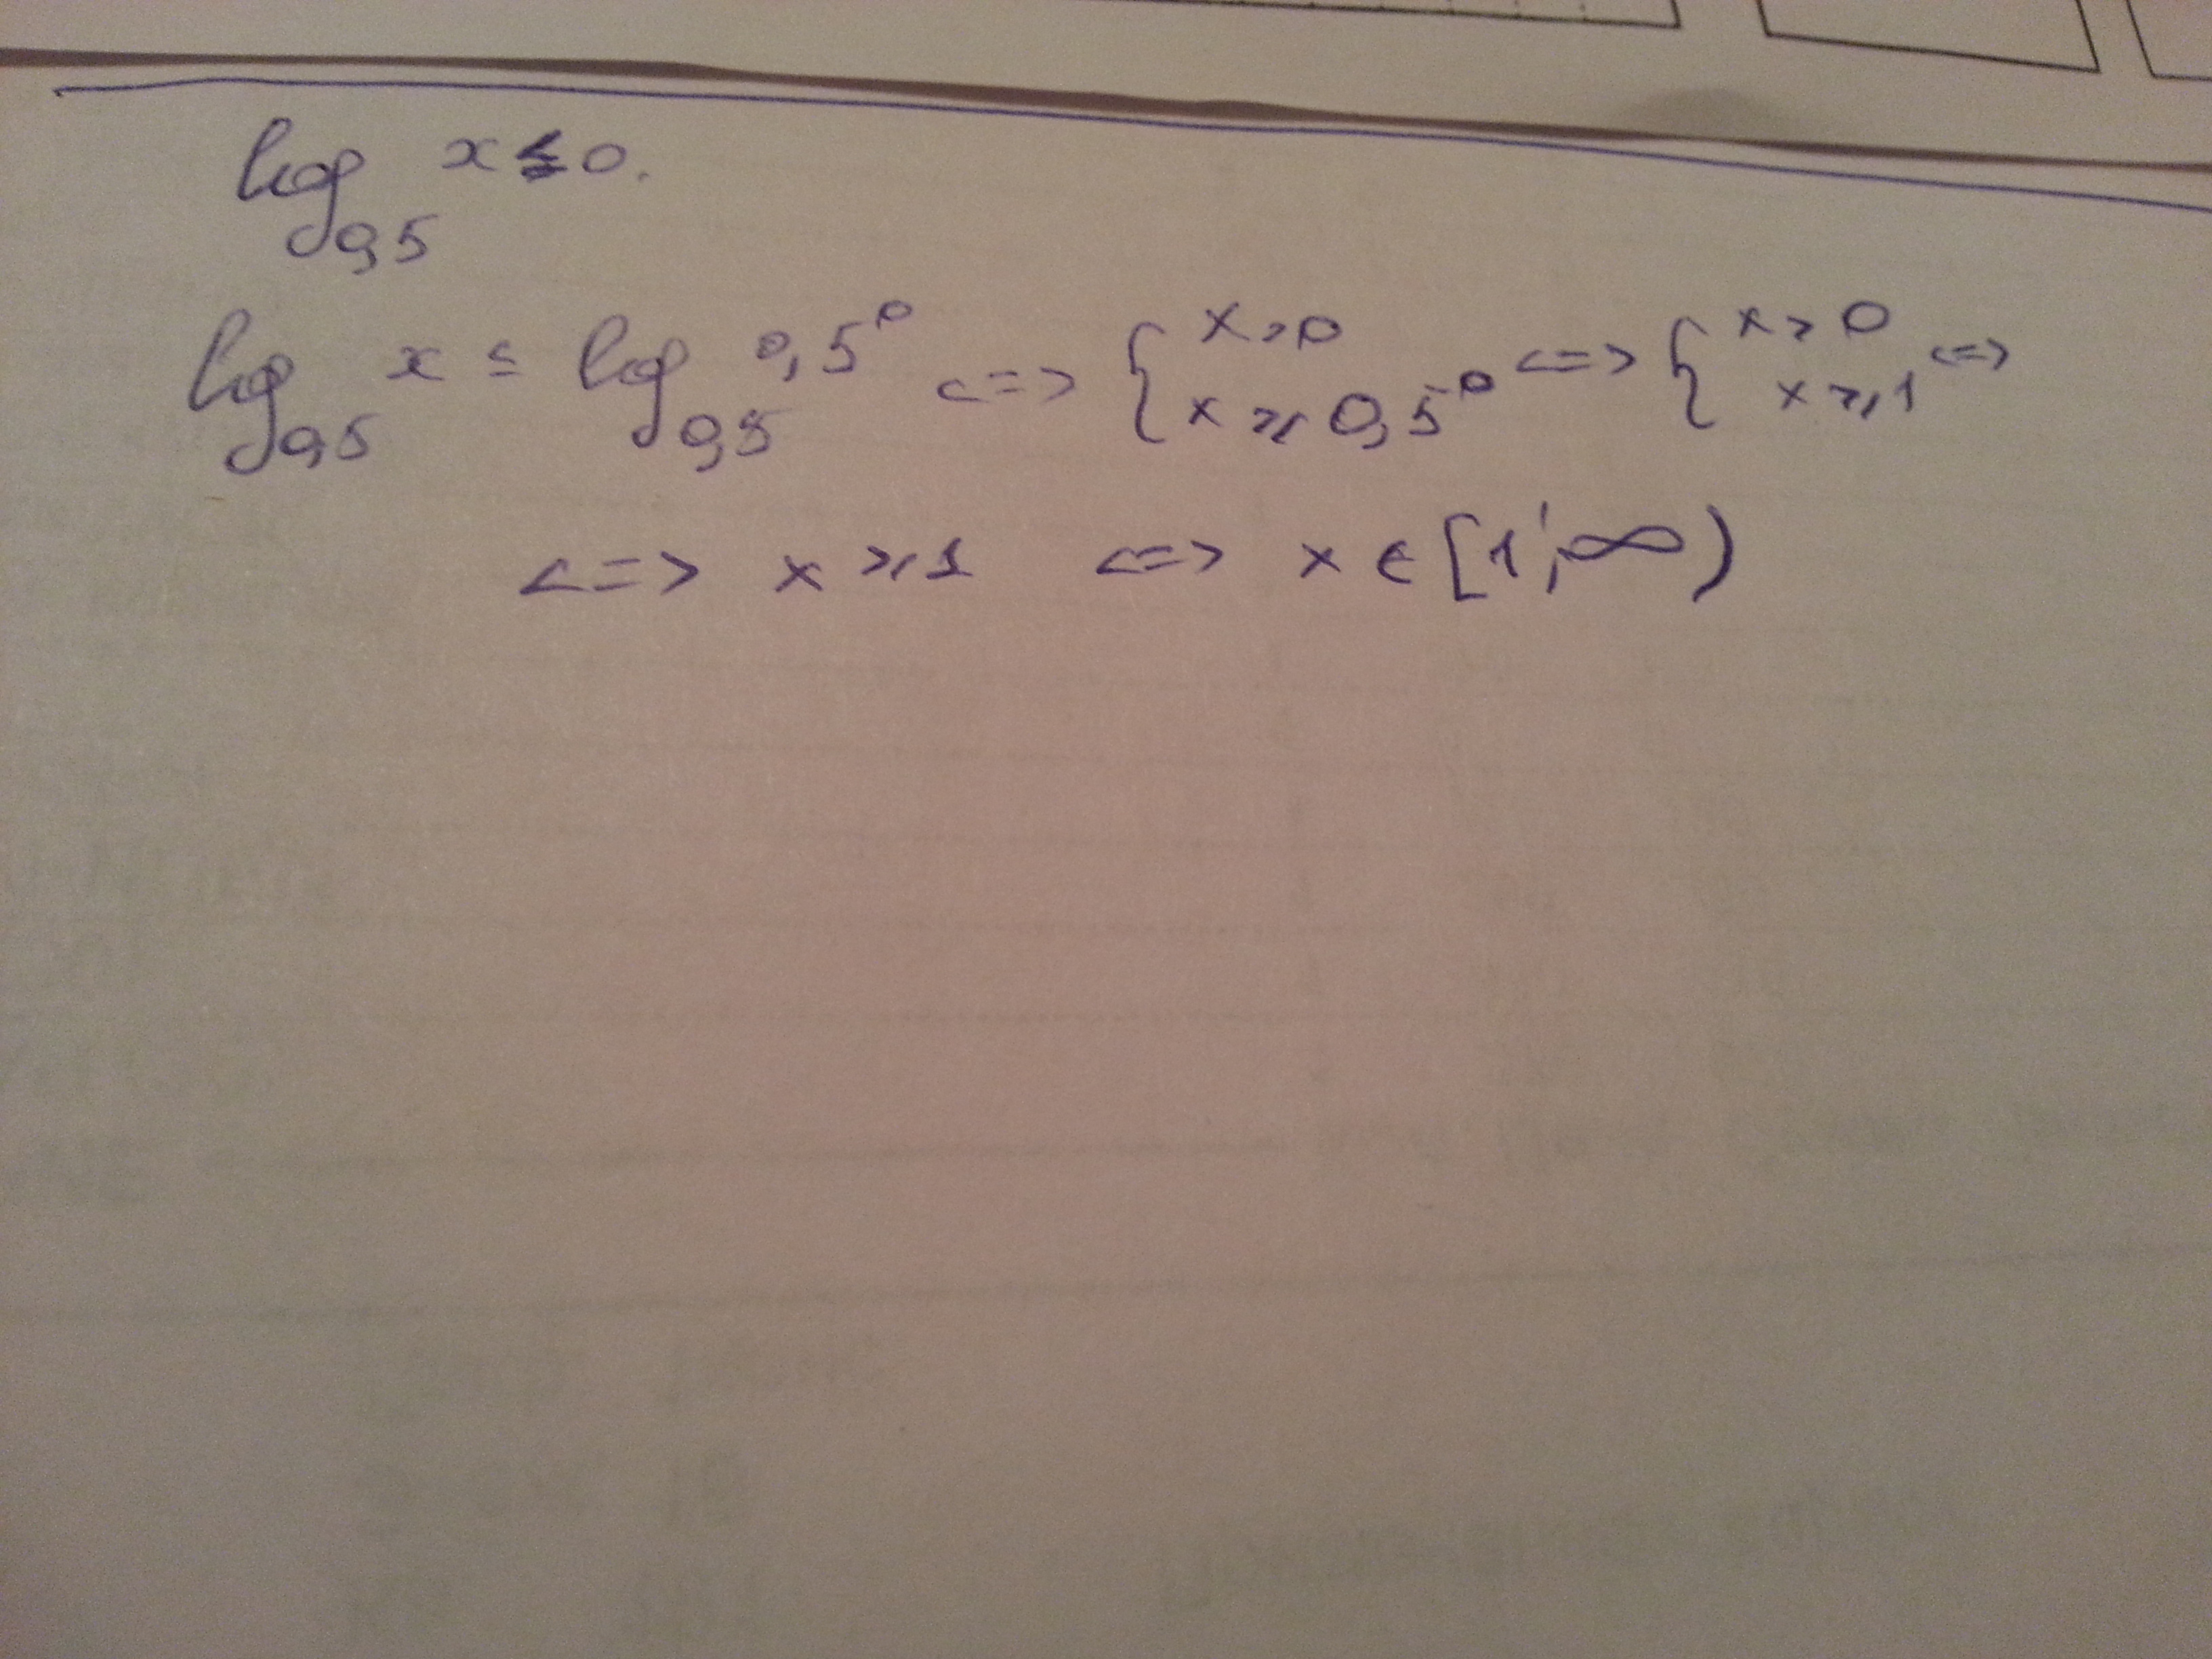 log₀,₅ x ≤ 0.
log₀,₅ x ≤ log₀,₅ 0,5⁰ <=> { x > 0 x ⩾ 0,5⁰ <=> { x > 0 x ⩾ 1 <=>
<=> x ⩾ 1 <=> x ∈ [1; ∞)